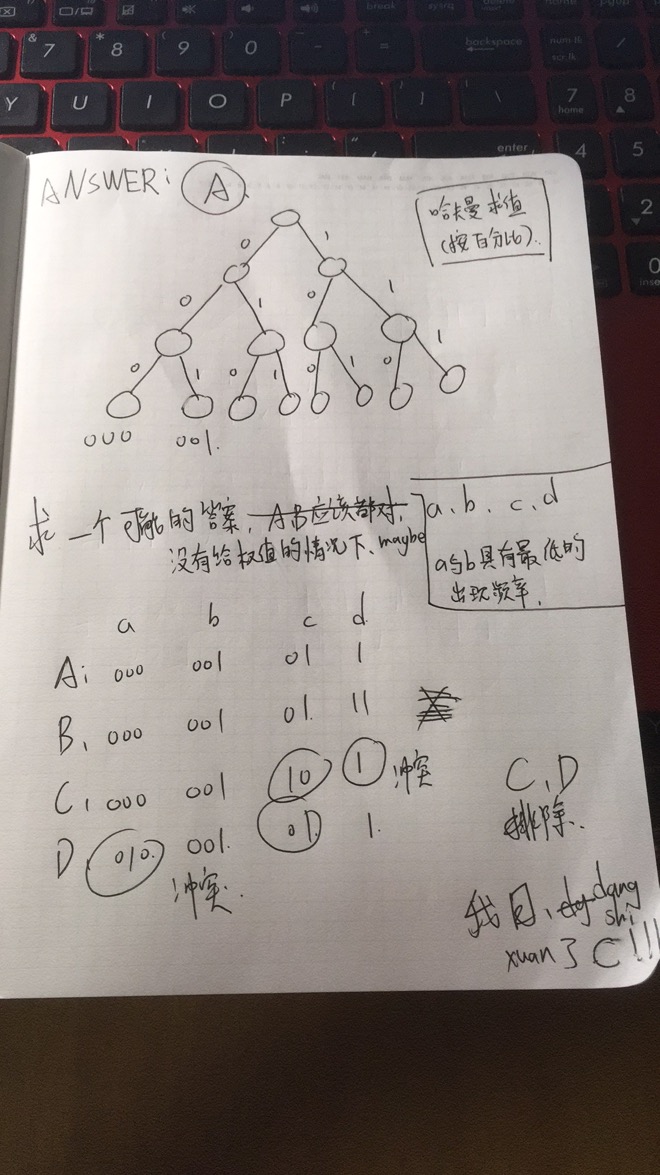 & 7
* 8
( 9
) 0
-
+ =
backspace
num lk
scr lk
/
Y U I O P [ ] \
7 home
8
enter
4
5
2
0
ANSWER: A
哈夫曼求值
(按百分比).
0 1
0 1 0 1
0 1 0 1 0 1 0 1
000 001.
求一个可能的答案, AB应该都对,
没有给权值的情况下、maybe
a、b、c、d
a与b具有最低的
出现频率.
a b c d
A: 000 001 01 1
B, 000 001 01. 11
C, 000 001 10 1 冲突
D 010. 001. 01. 1.
冲突.
C、D
排除.
dang
shi
xuan了C!!!